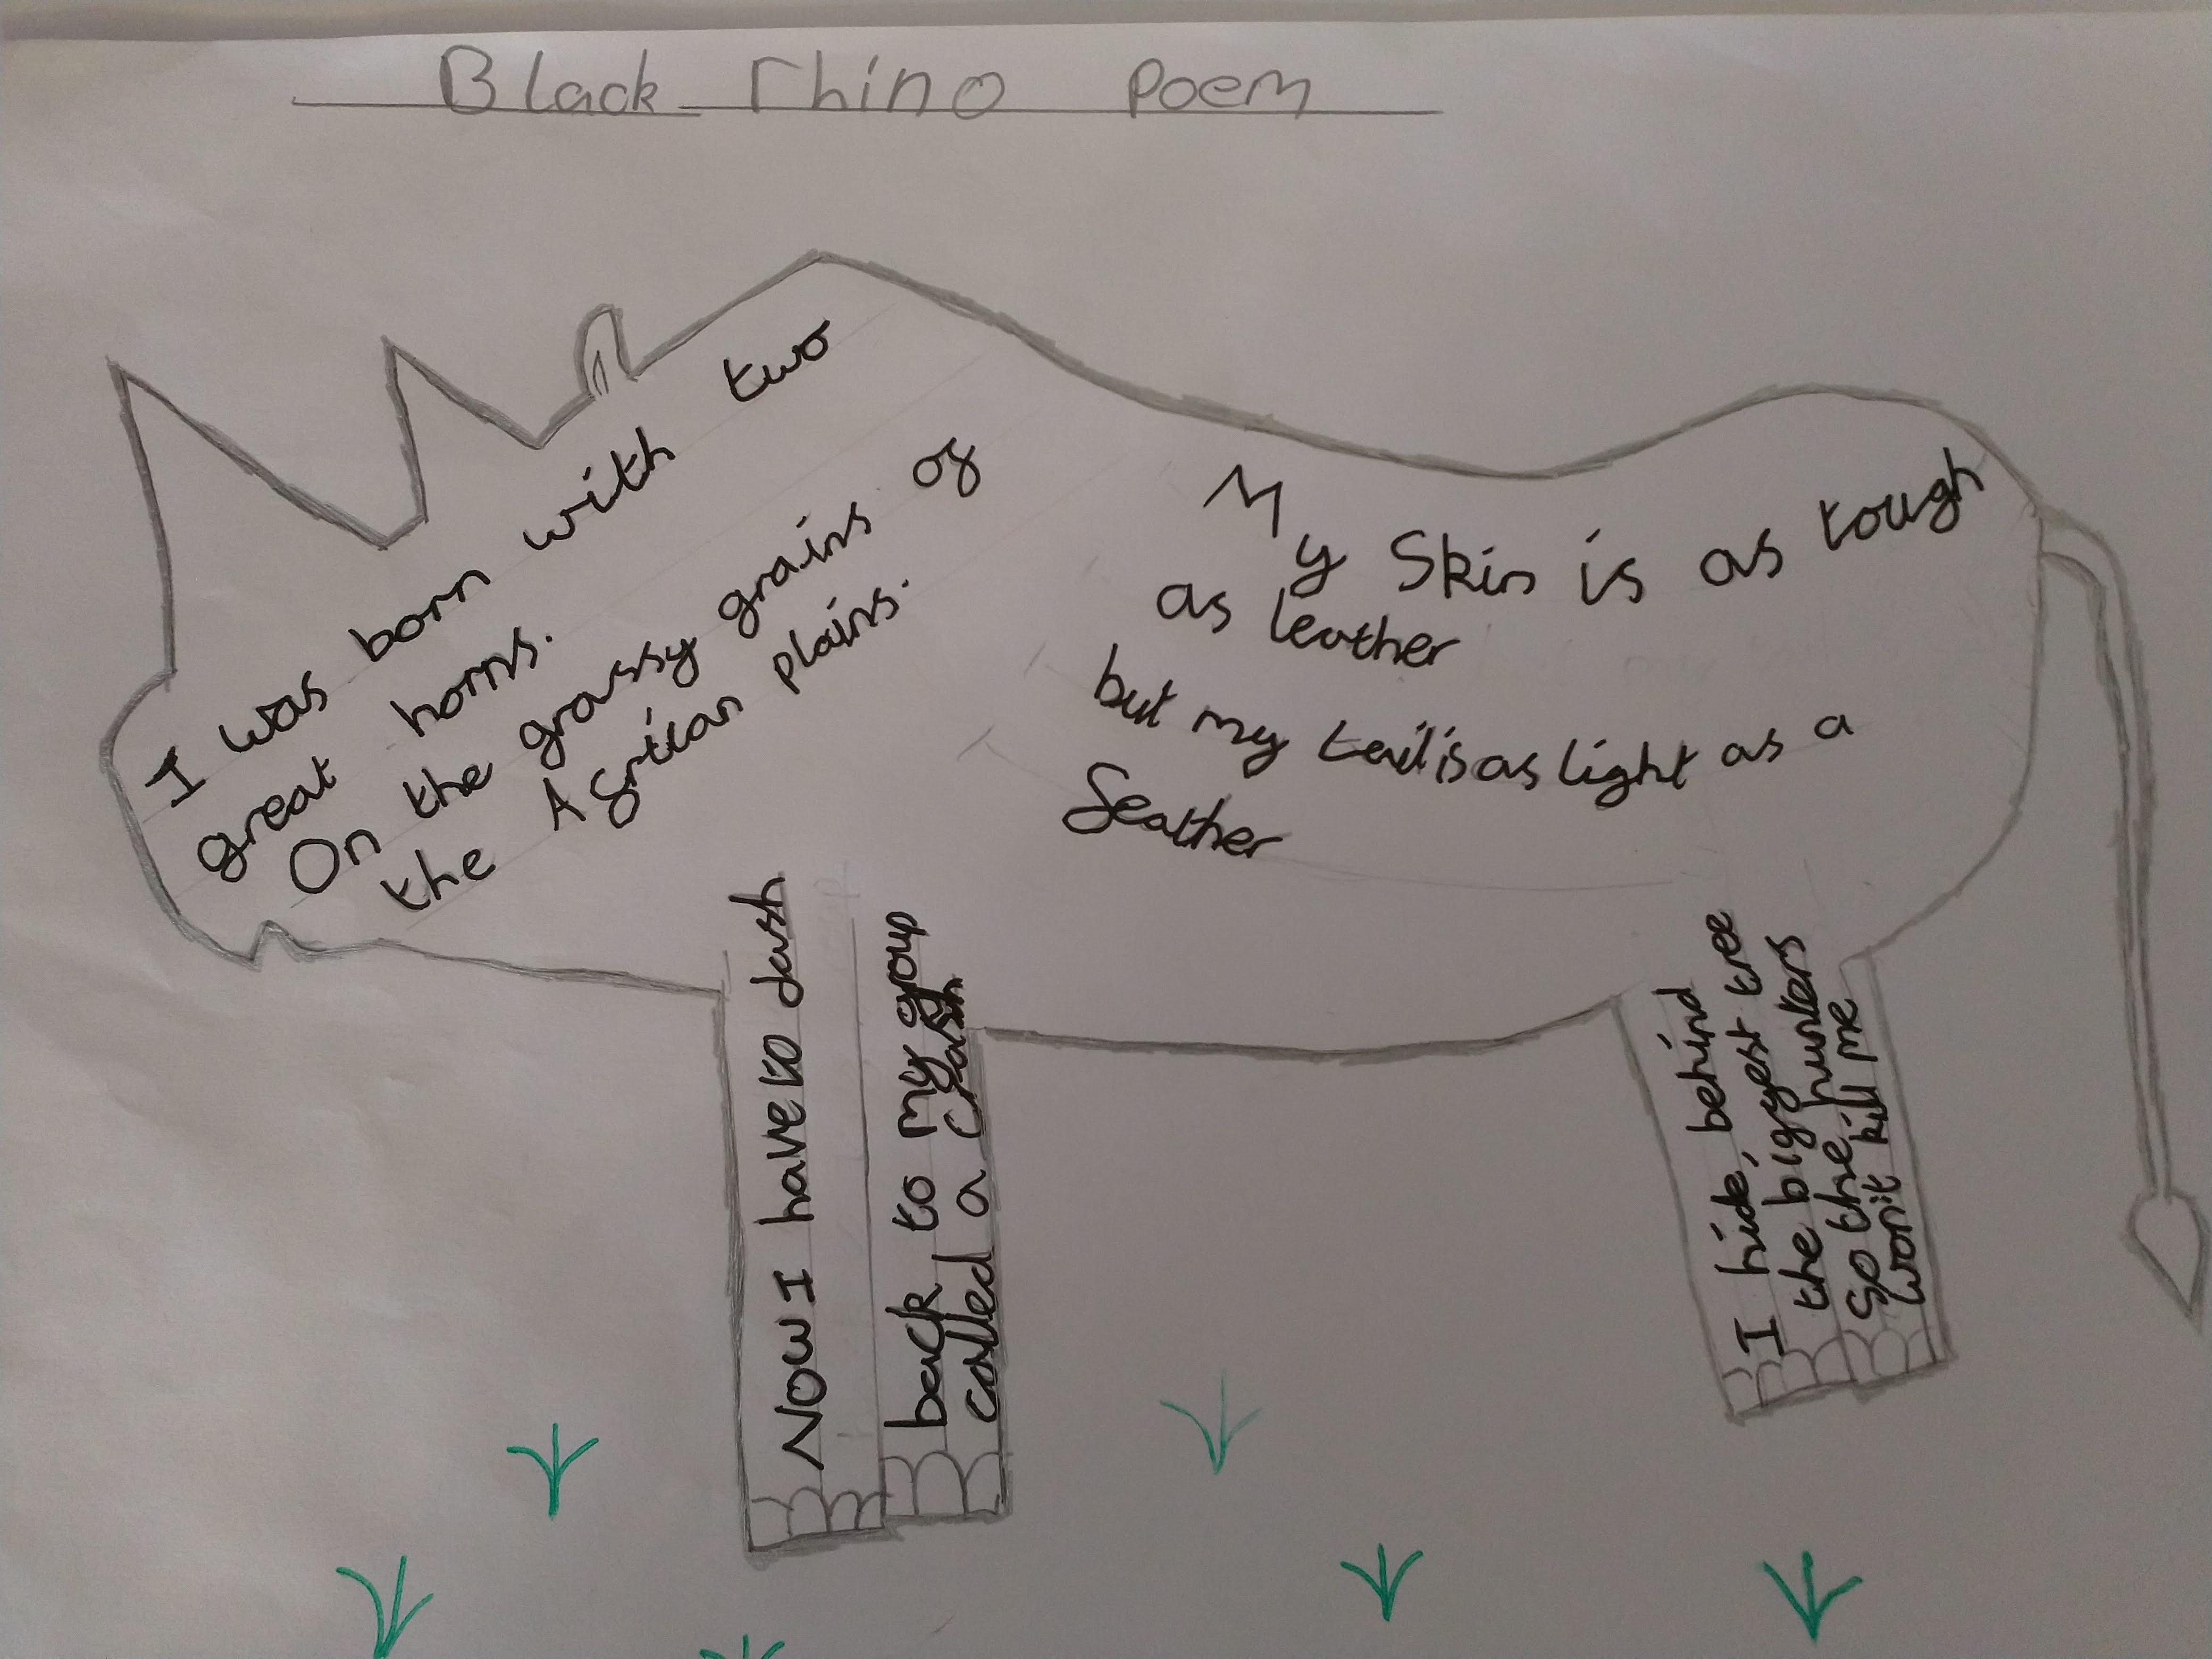 Black rhino Poem
I was born with two
great horns.
On the grassy grains of
the African plains.
My Skin is as tough
as leather
but my tail is as light as a
feather
Now I have to dash
back to my group
called a crash
I hide, behind
the biggest tree
so the hunters
won't kill me